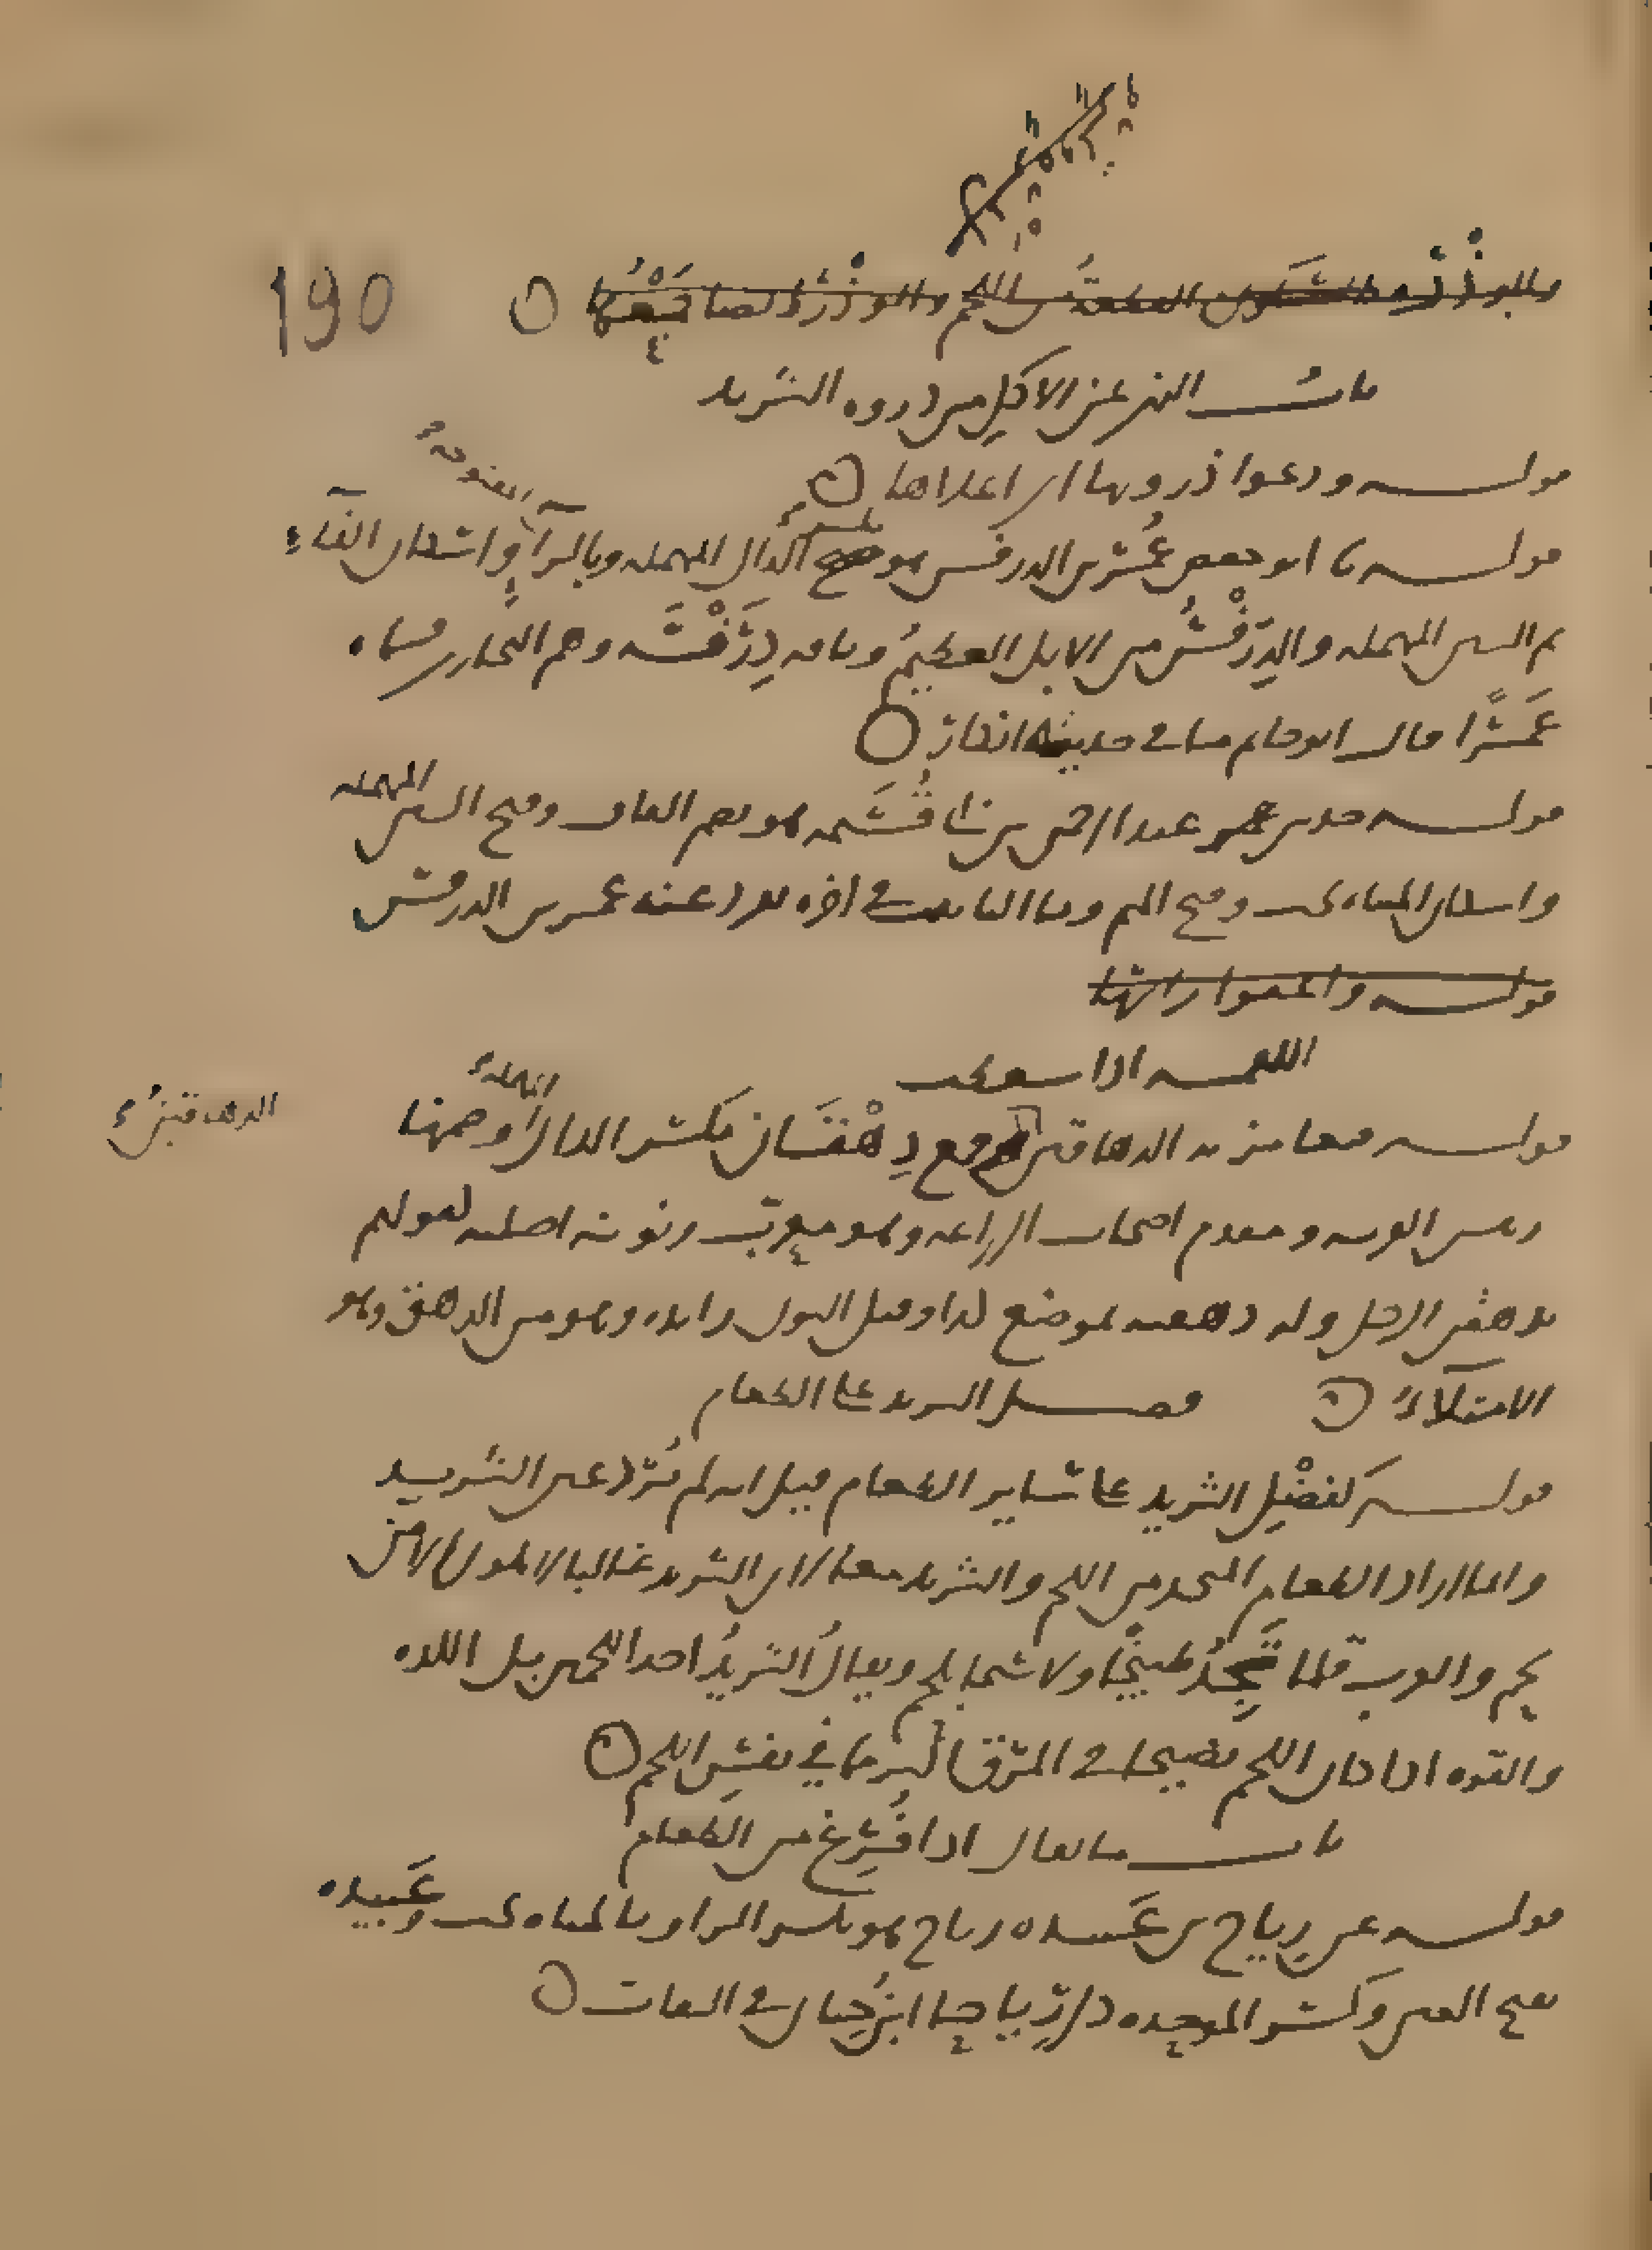 والوذْرة بالسكون القطعة من اللحم والوذْرُ الصاجَمْعُها
190
باب النهي عن الاكل من ذروة الثريد
قوله ودعوا ذروتها اي اعلاها
المفتوحة
قوله ثنا ابو حفص عُمَر بن الدرفس هو بكسر الدال المهملة وبالراء واسكان الفاء
ثم السين المهملة والدِرَفْسُ من الابل العظيمُ وناقة دِرَفْسَة وهم البخاري فسماه
عَمْرًا قال ابو حاتم ما في حديثه انكار
قوله حدثني عبد الرحمن بن ابي قُسَيمة هو بضم القاف وفتح السين المهملة
واسكان المثناة تحت وفتح الميم وتاء التأنيث في اخره تفرد عنه عمر بن الدرفس
قوله والعقوا
اللقمة اذا سقطت
قوله فتغامز به الدهاقين هو جمع دِهْقَان بكسر الدال المهملة وضمها
الدهاقينُ
رئيس القرية ومقدم اصحاب الزراعة وهو معرّب ونونه اصلية لقولهم
تدهقن الرجل وله دهقنة بموضع كذا وقيل النون زائدة وهو من الدهق وهو
الامتلاءُ
فضل الثريد على الطعام
قوله كفضْلِ الثريد على سَاير الطعام قيل انه لم يُرِد عين الثريد
وانما اراد الطعام المتخذ من اللحم والثريد معا لان الثريد غالبا لا يكون الا من
لحم والعرب قلما تَجِدُ طبيخًا ولا سيما بلحم ويقالُ الثريدُ احد اللحمين بل اللذة
والقوة اذا كان اللحم نضيجا في المرق اكثر مما في نفسِ اللحم
باب ما يقال اذا فُرِغ من الطعام
قوله عن رِياح بن عَبيدة رياح هو بكسر الراء وبالمثناة تحت وعَبيدة
بفتح العين وكسر الموحدة ذكر رِياحا ابن حِبان في الثقات